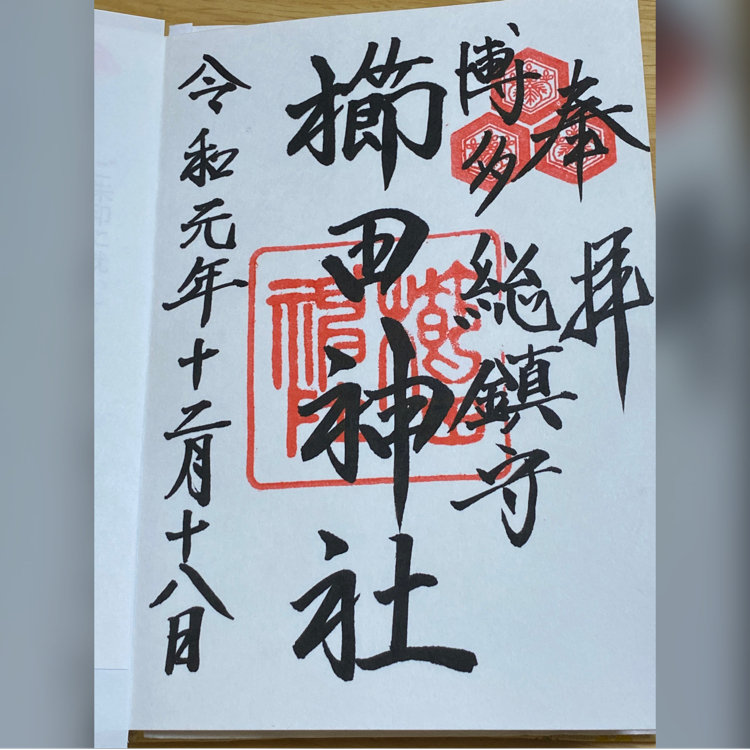 奉拝
博多総鎮守
櫛田神社
令和元年十二月十八日